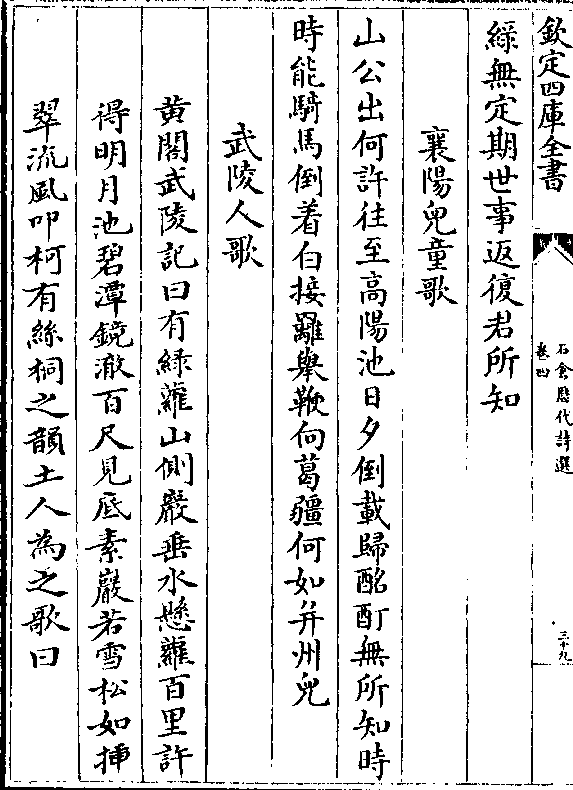 欽定四庫全書
石倉歷代詩選
卷四
三十九
綠無定期世事返復君所知
襄陽兒童歌
山公出何許往至高陽池日夕倒載歸酩酊無所知時
時能騎馬倒着白接䍦舉鞭向葛彊何如并州兒
武陵人歌
黄閣武陵記曰有緑蘿山側嚴垂水懸蘿百里許
得明月池碧潭鏡澈百尺見底素巖若雪松如挿
翠流風叩柯有絲桐之韻土人為之歌曰